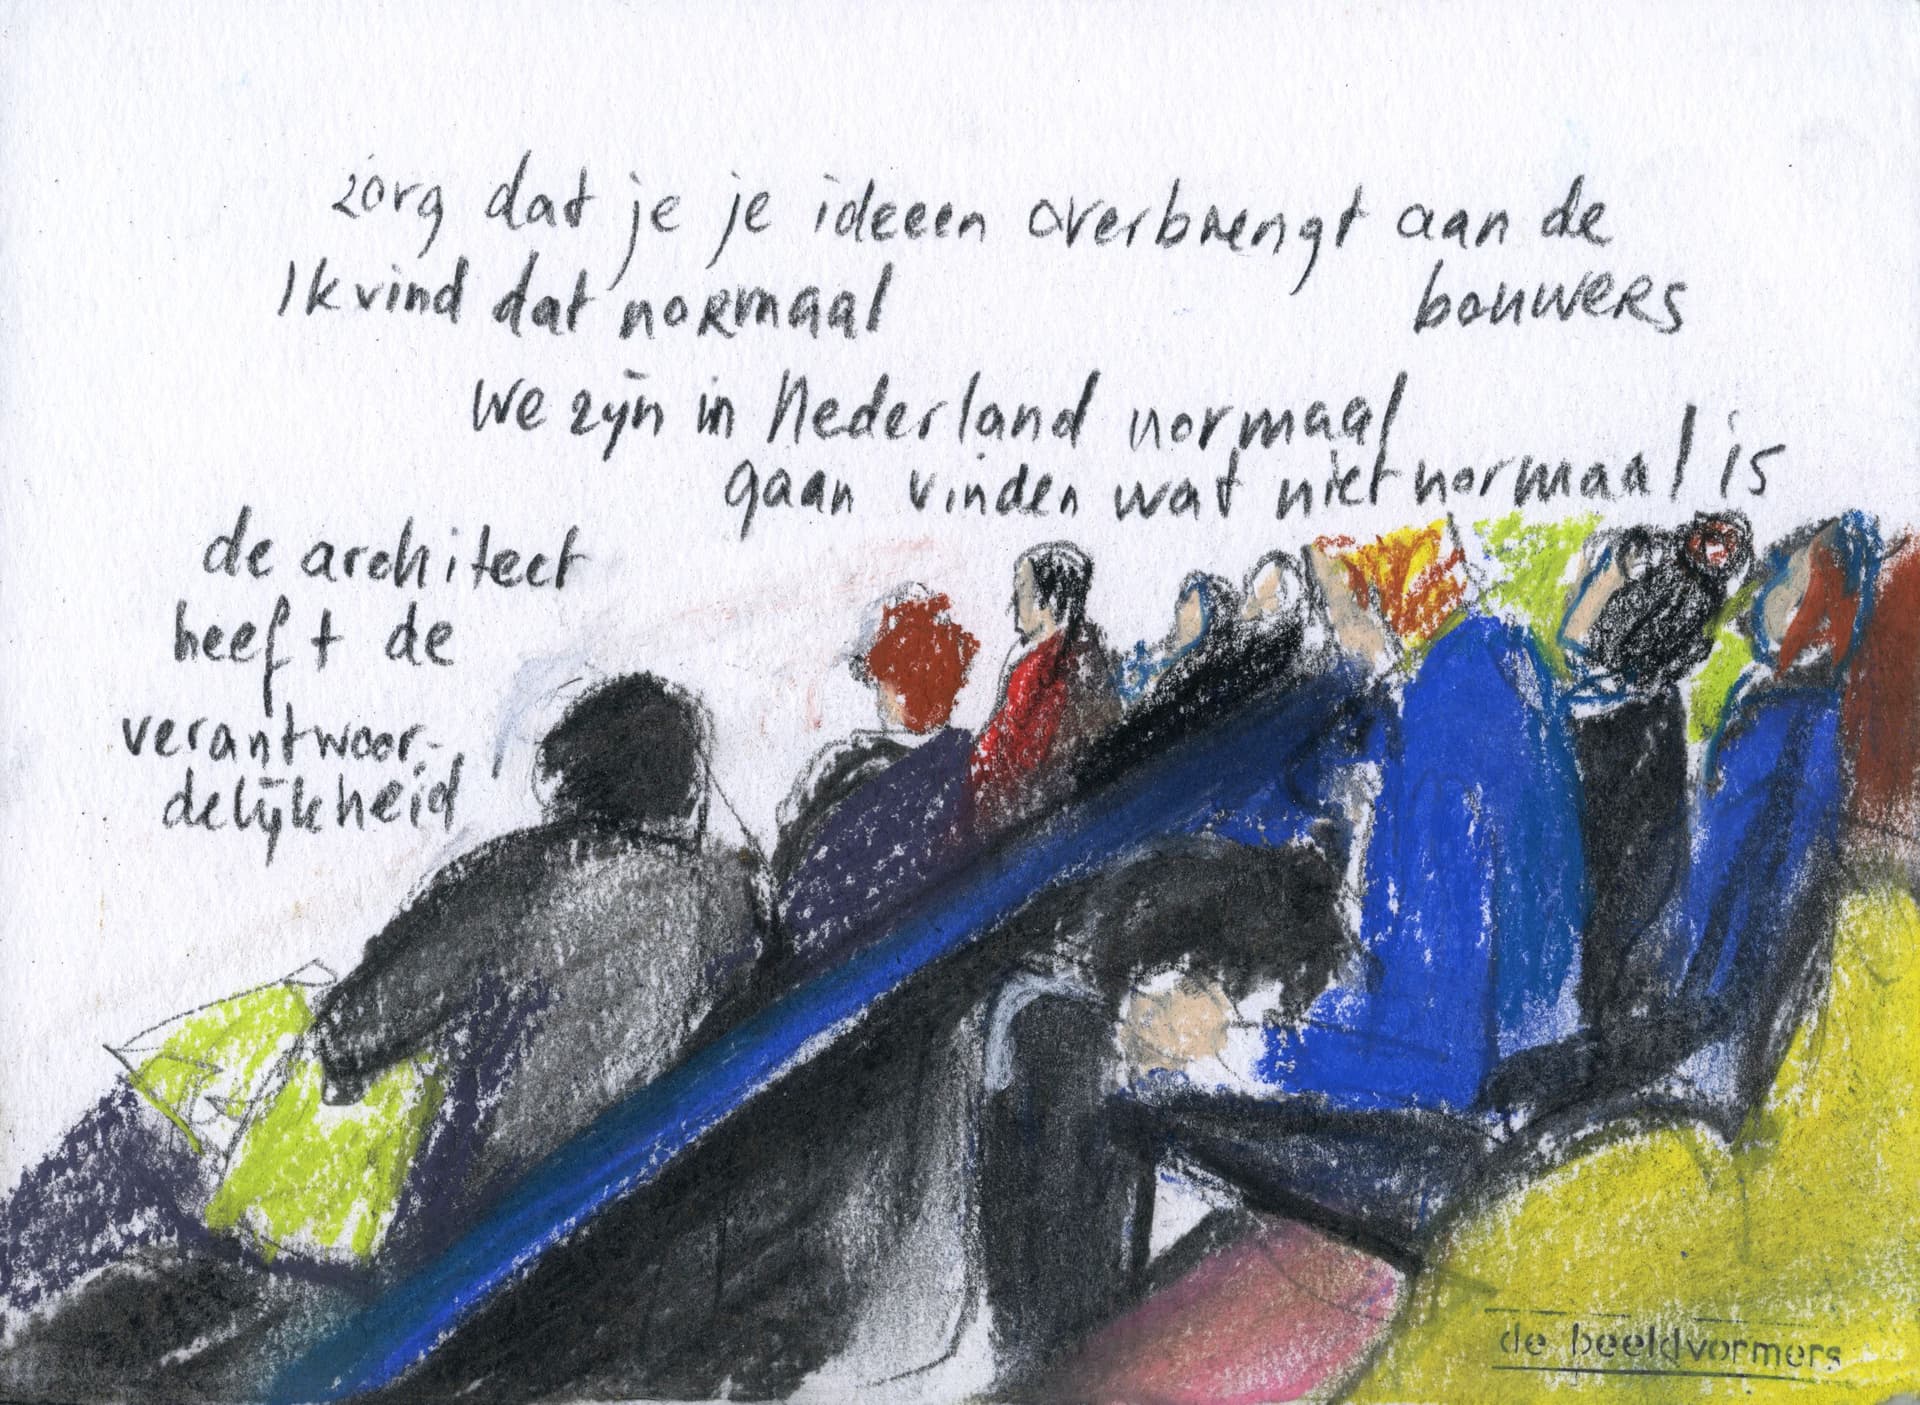 zorg dat je je ideeen overbrengt aan de
bouwers
Ik vind dat normaal
we zijn in Nederland normaal
gaan vinden wat niet normaal is
de architect
heeft de
verantwoor-
delijkheid
de beeldvormers